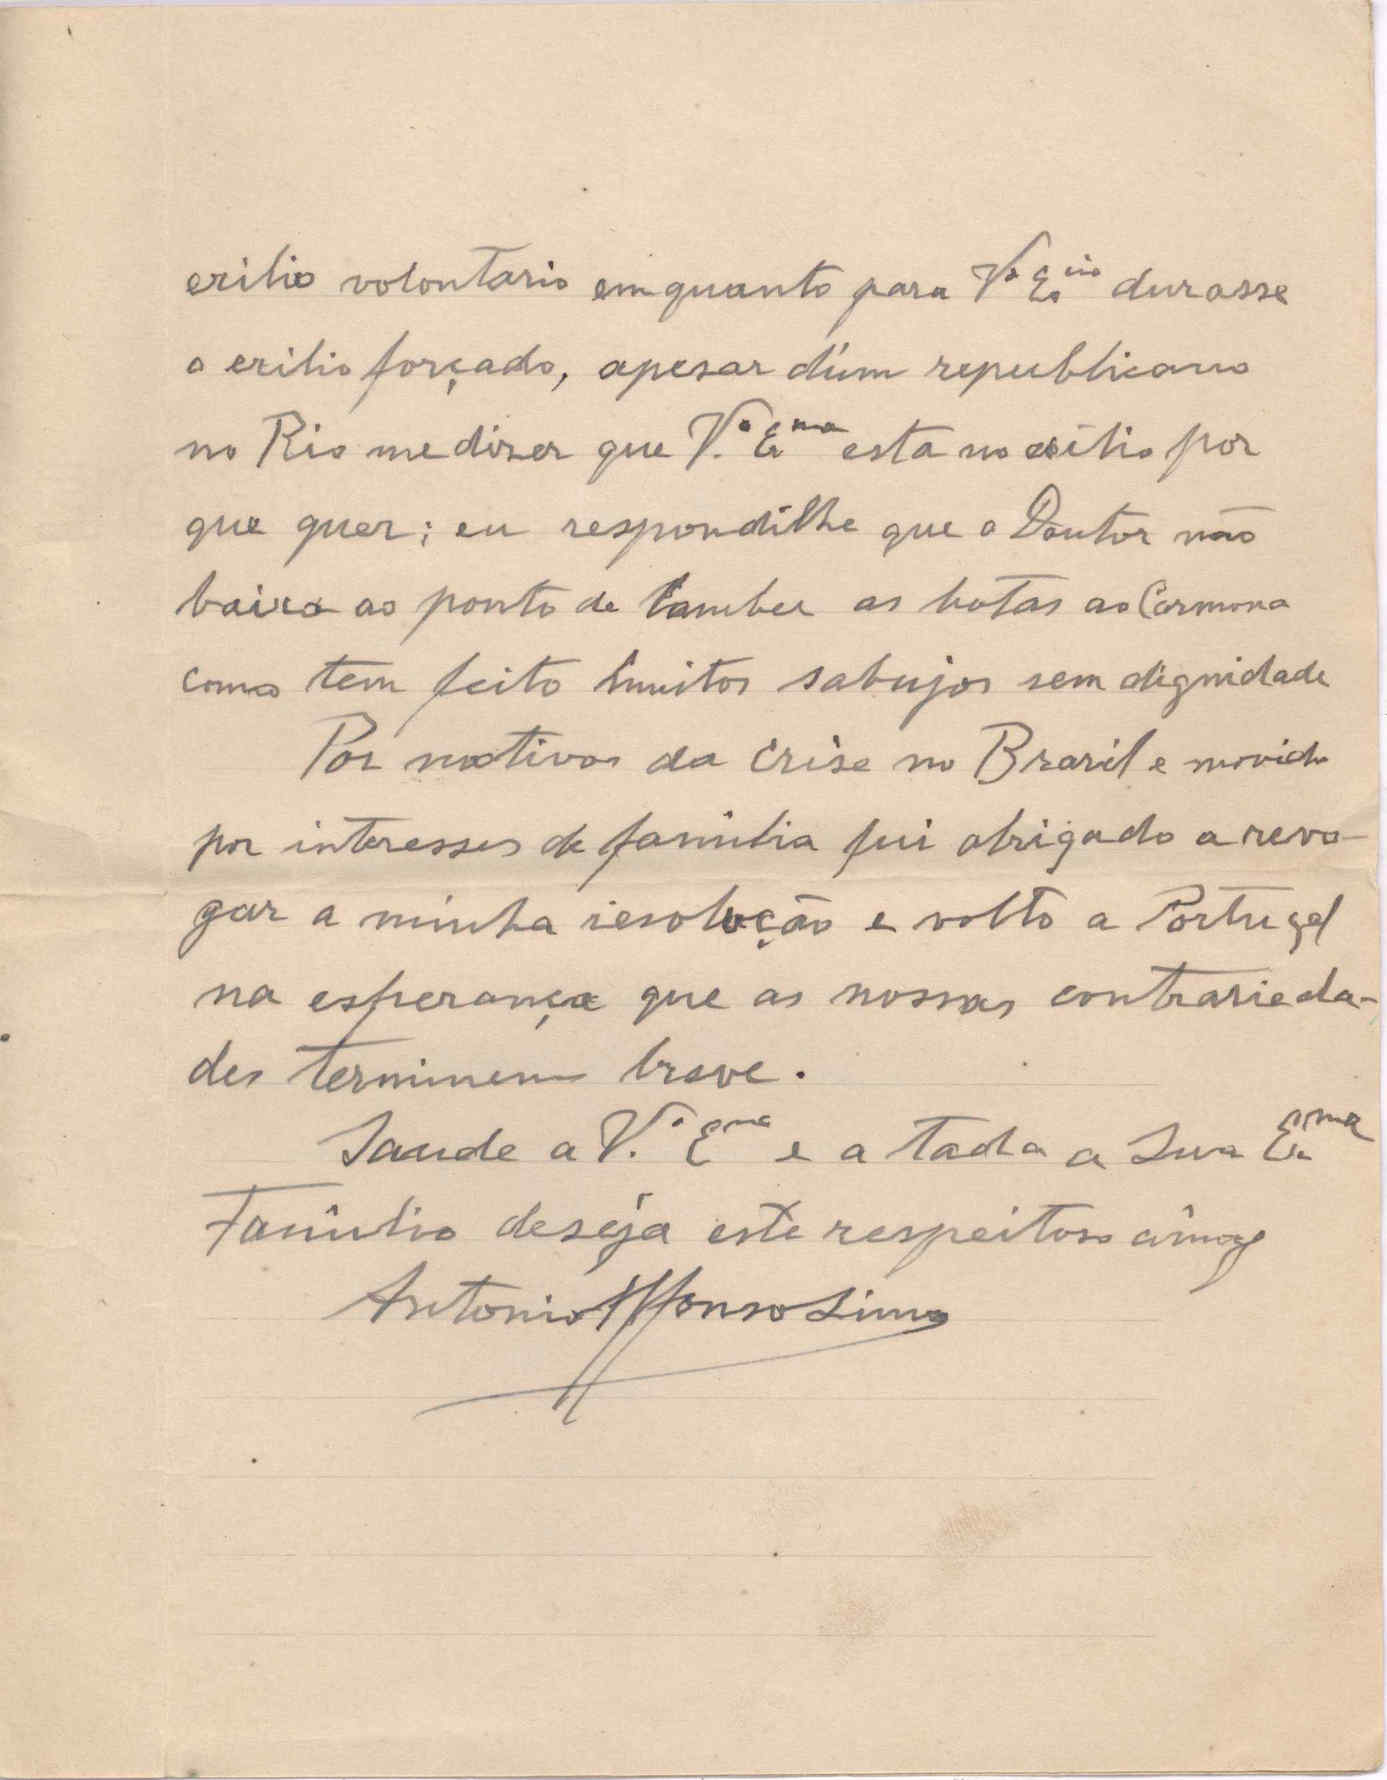 exilio volontario emquanto para V.ª Ex.cia durasse
o exilio forçado, apesar d'um republicano
no Rio me dizer que V.ª Ex.ma esta no exilio por
que quer; eu respondilhe que o Doutor não
baixa ao ponto de lamber as botas ao Carmona
como tem feito muitos sabujos sem dignidade
Por motivos da crise no Brazil e movido
por interesses de familia fui obrigado a revo-
gar a minha resolução e volto a Portugal
na esperança que as nossas contrarieda-
des terminem breve.
Saude a V.ª E.ma e a toda a Sua Ex.ma
Familia deseja este respeitoso amigo
Antonio Affonso Lima